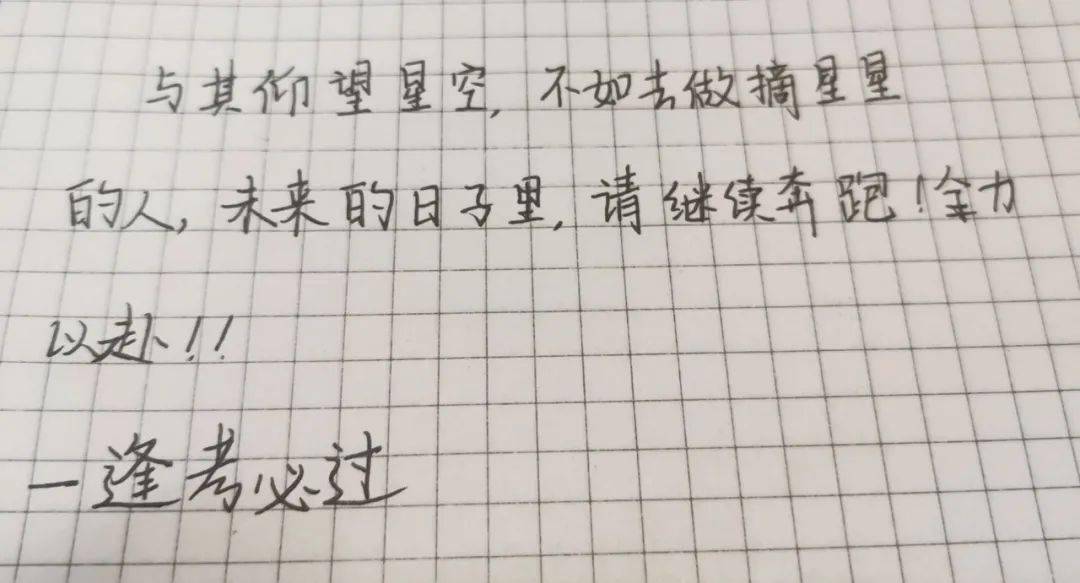 与其仰望星空,不如去做摘星星
的人,未来的日子里,请继续奔跑!全力
以赴!!
一逢考必过